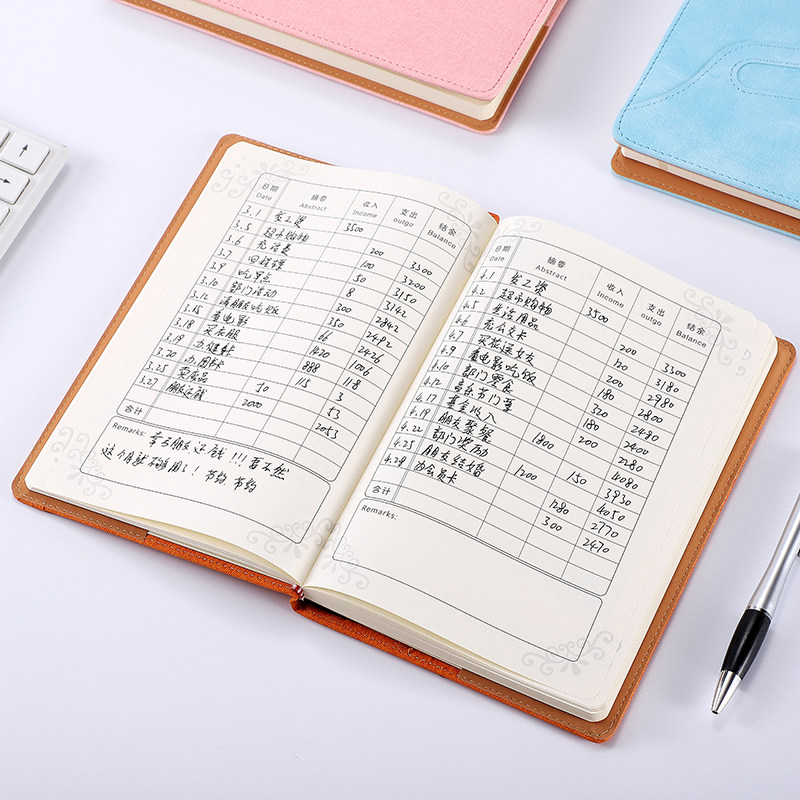 日期 摘要 收入 支出 结余
Date Abstract Income outgo Balance
3.1 发工资 3500
3.5 超市购物 200 3300
3.6 充话费 100 3200
3.7 50 3150
3.9 吃早点 8 3142
3.10 部门活动 300 2842
3.12 请朋友吃饭 350 2492
3.15 看电影 66 2426
3.18 买衣服 1420 1006
3.19 办健卡 888 118
3.20 办图书卡 115 3
3.25 卖废品 50 53
3.27 朋友还钱 2000 2053
合计
Remarks: 幸亏朋友还钱!!! 要不然
这个月就不够用了! 节约 节约
日期 摘要 收入 支出 结余
Date Abstract Income outgo Balance
4.1 发工资 3500
4.2 超市购物 200 3300
4.5 生活用品 120 3180
4.6 充公交卡 2980
4.7 买花送女友 180 2800
4.9 看电影吃饭 320
4.10 部门零食 180 2400
4.12 音乐节门票 200 2280
4.17 基金收入 1800 4080
4.19 朋友聚餐 150 3930
4.22 部门活动 4050
4.25 朋友结婚 1280 2770
4.28 办会员卡 300 2470
合计
Remarks: